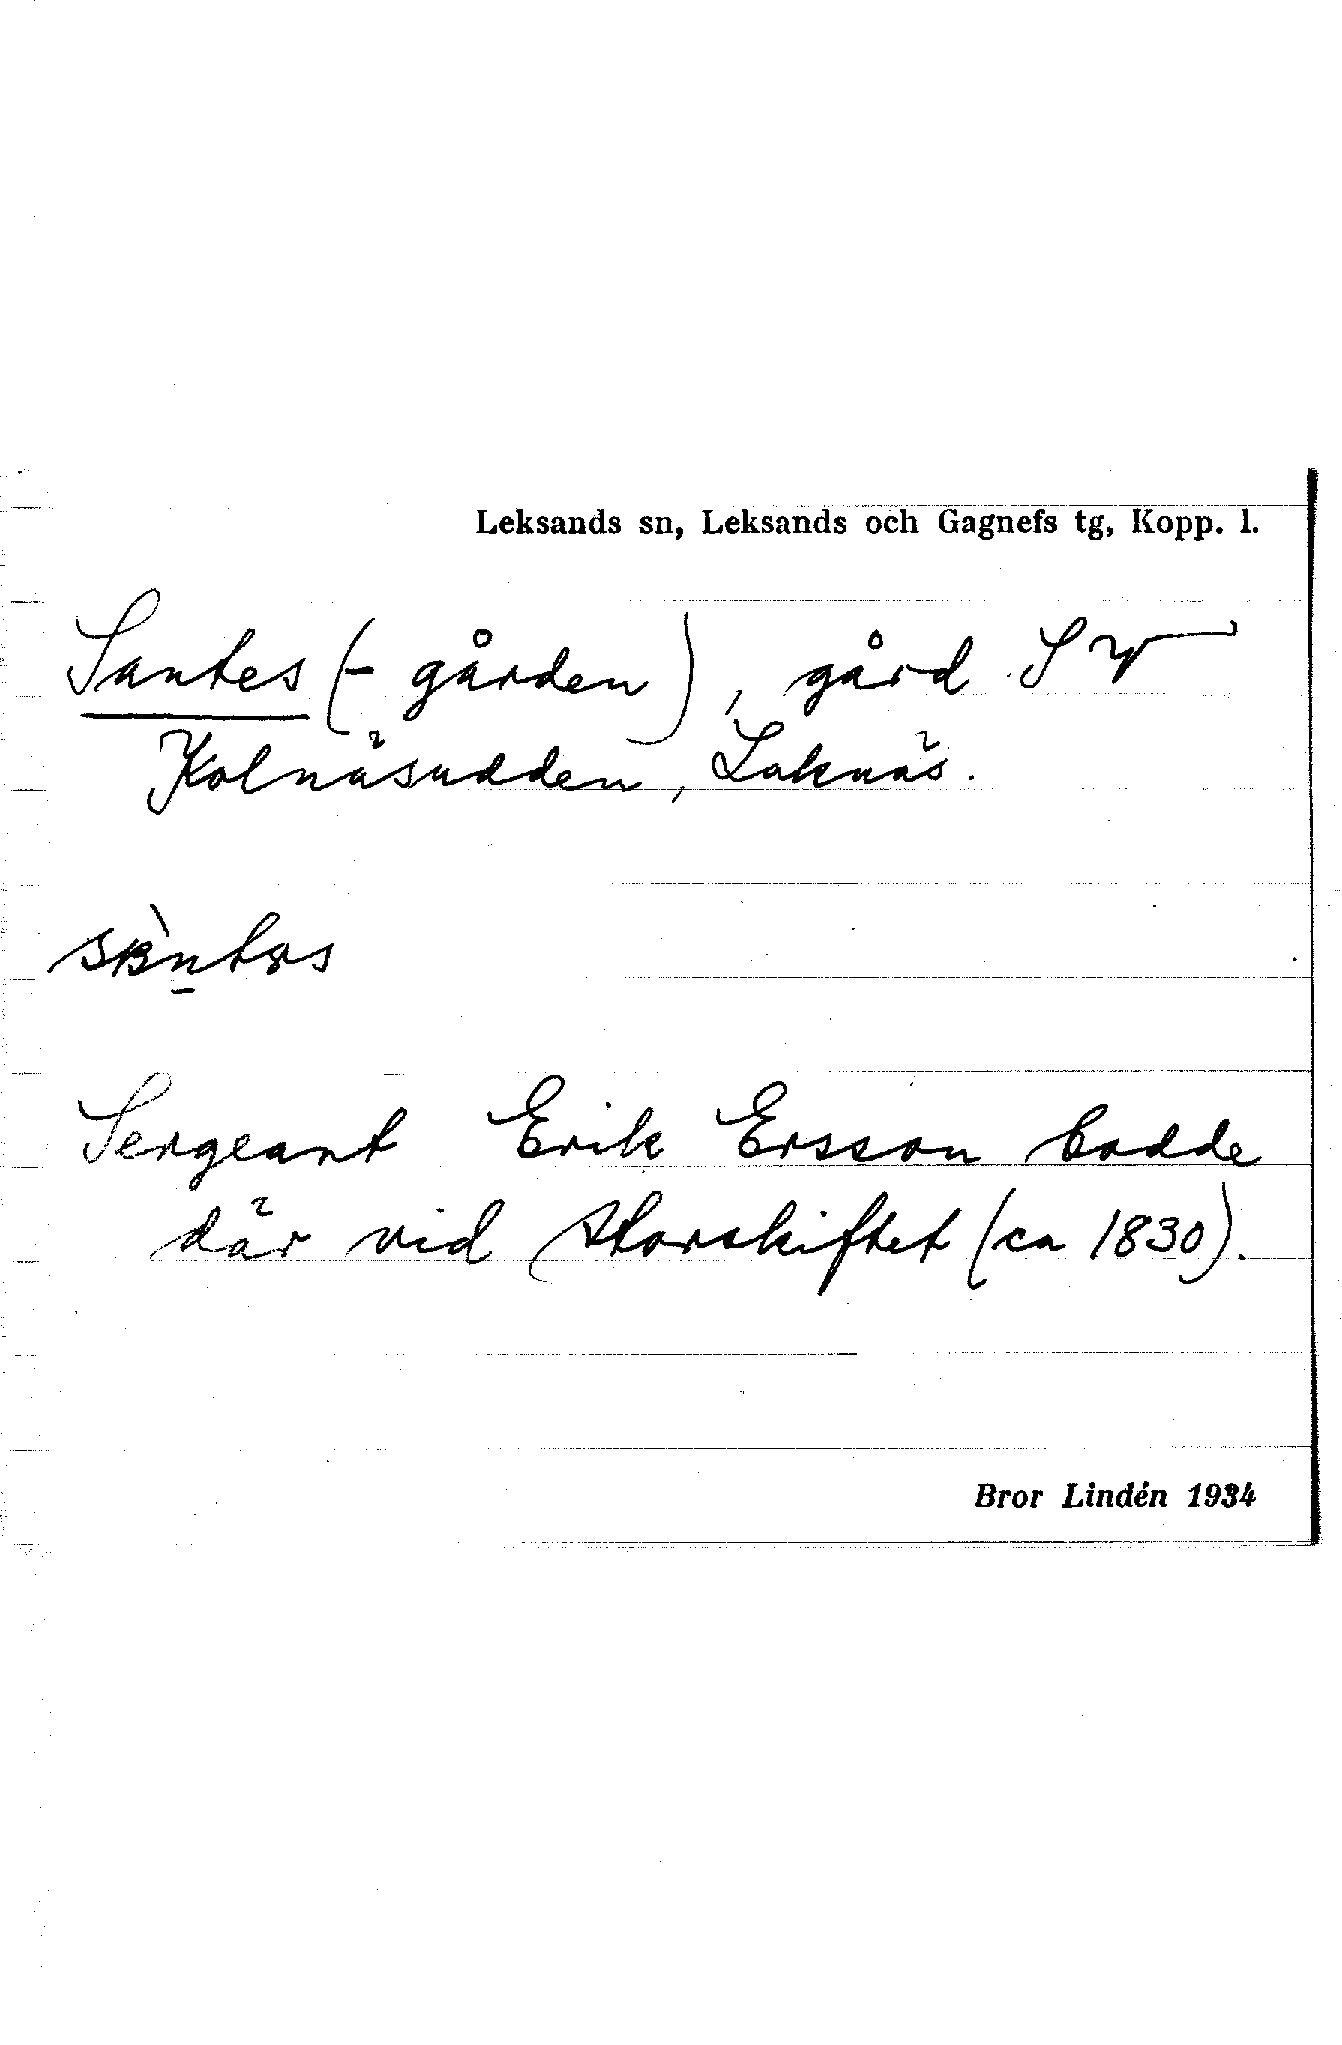 Leksands sn, Leksands och Gagnefs tg, Kopp. l.
Santes (-gården), gård SV
Kolnäsudden, Laknäs.
Sergeant Erik Ersson bodde
där vid Storskiftet (ca 1830).
Bror Lindén 1934